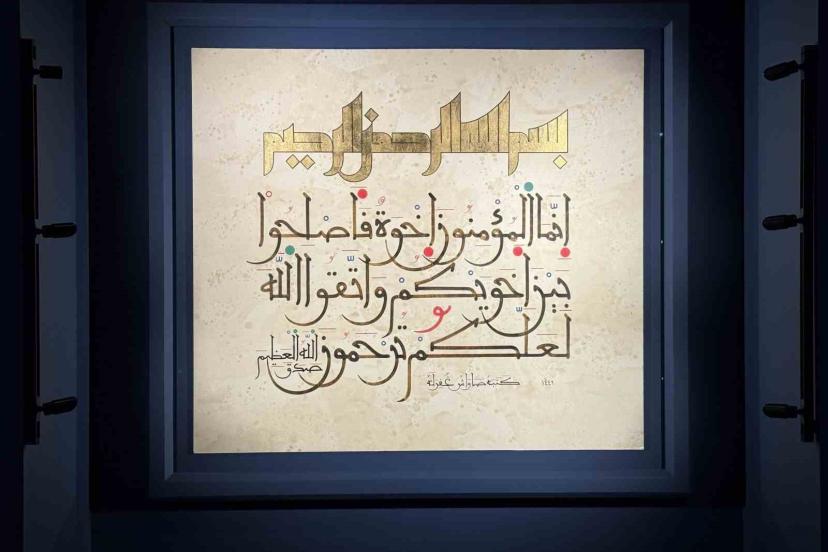 بسم الله الرحمن الرحيم
انّما المؤمنون اخوة فاصلحوا
بين اخويكم واتّقوا اللّه
لعلّكم ترحمون
صدق اللّه العظيم
كتبه صاواش غفرله